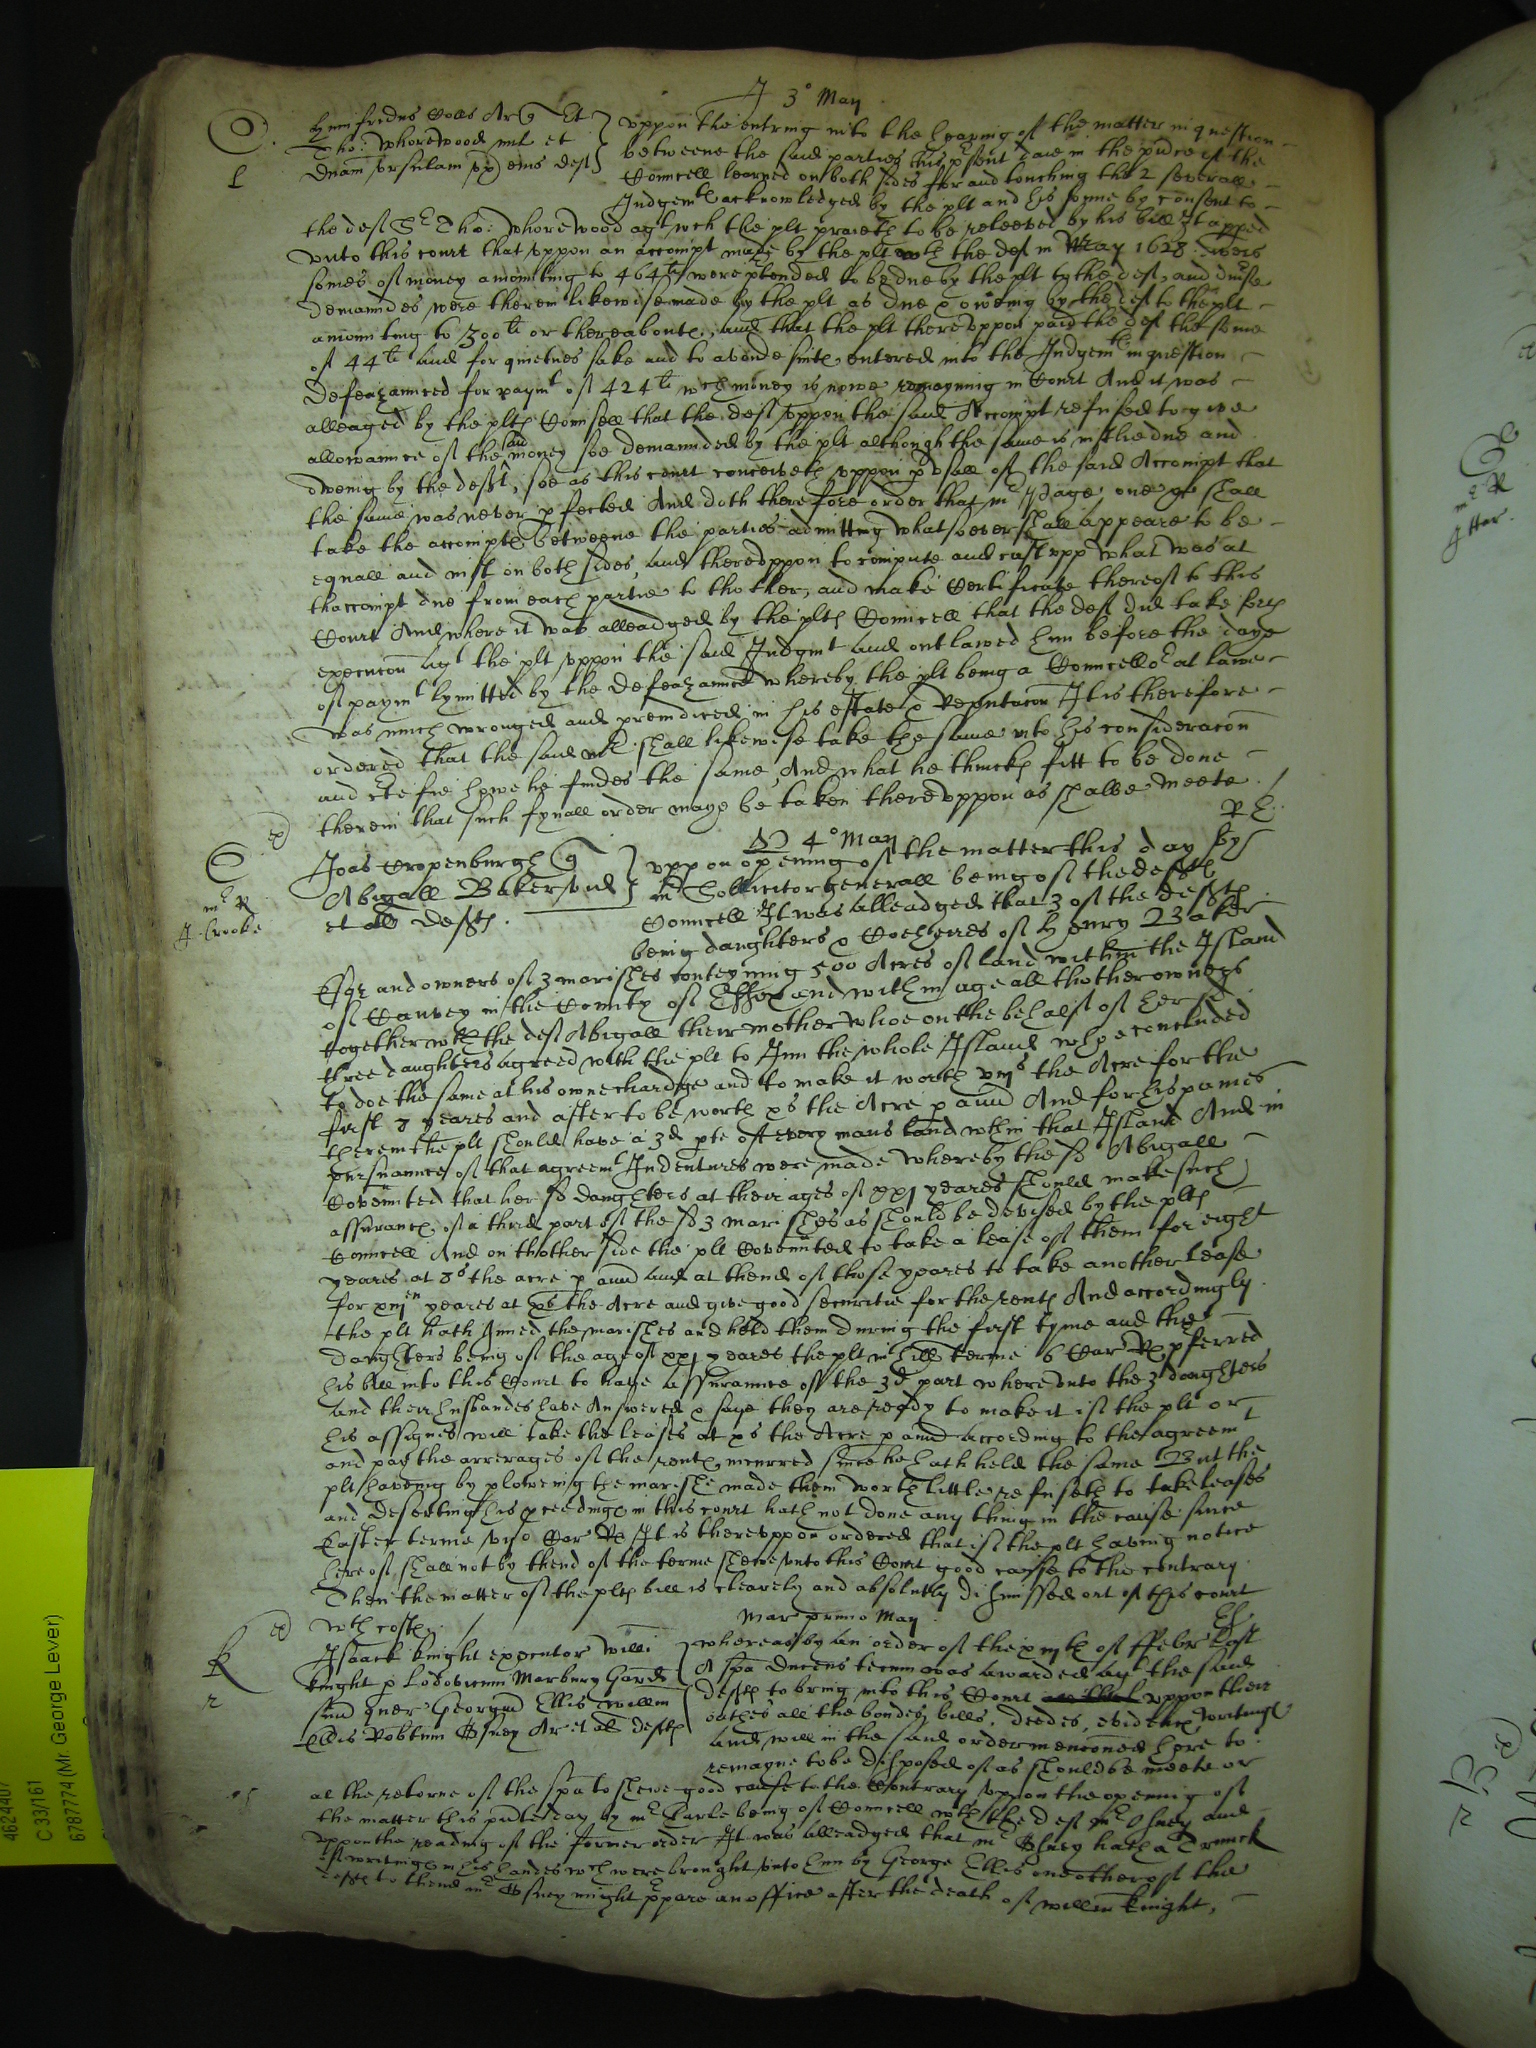 A 3° May
Humfridus Coles Ar q Et
Tho: Whorewood mil et
Dnam Ursulam ux eius def
L
Uppon the entring into the hearing of the matter in question
betweene the said parties this psent daie in the pnce of the
Councell learned on both sides for and touching the 2 severall
Judgemts acknowledged by the plt and his sonne by consent to
the def Sr Tho: Whorewood agt wch the plt praieth to be releeved by his bill It apped
unto this court that uppon an accompt made by the plt wth the def in May 1628 divers
somes of money amounting to 464li were ptended to be due by the plt to the def, and divse
demaundes were therein likewise made by the plt as due & oweing by the def to the plt
amounting to 300li or thereaboutes, and that the plt thereuppon paid the def the some
of 44li And for quietnes sake and to avoide suits entered into the Judgemts in question
Defeazanced for paymt of 424li wch money is nowe remayning in Court And it was
alleaged by the plts Counsell that the deft uppon the said Accompt refused to give
allowaunce of the said money soe demaunded by the plt although the same is iustlie due and
oweing by the deft, soe as this court conceiveth uppon pusall of the said Accompt that
the same was never pfected And doth therefore order that mr Page one &c shall
take the accompts betweene the parties admitting whatsoever shall appeare to be
equall and iust on both sides, and thereuppon to compute and cast upp what was at
thaccompt due from each partie to thother, and make Certificate thereof to this
Court And where it was alleadged by the plts Councell that the def did take forth
execucon agt the plt uppon the said Judgmt and outlawed him before the daye
of paymt lymitted by the Defeazance whereby the plt being a Councellor at lawe
was much wronged and preiudiced in his estate & Reputacon It is therefore
ordered that the said mr shall likewise take the same into his consideracon
and ctefie howe he findes the same, And what he thinckes fitt to be done
therein that such fynall order maye be taken thereuppon as shalbe meete.
4° May
mr R
A Crooke
Joas Cropenburgh q
Abigall Baker vid
et all defts.
Uppon opening of the matter this day by
mr Sollicitor generall being of the defts
Councell It was alleadged that 3 of the defts
being daughters & Coeheires of Henry Baker
Esqr and owners of 3 marishes conteyning 500 Acres of land within the Island
of Canvey in the County of Essex and within age all thother owners
together wth the def Abigall their mother whoe on the behalf of her sd
three daughters agreed with the plt to Inn the whole Island who concluded
to doe the same at his owne chardge and to make it worth viijs the Acre for the
first 8 yeares and after to be worth xs the Acre p ann And for his paines
therein the plt should have a 3d pte of every mans land wthin that Island And in
pursuance of that agreemt Indentures were made whereby the sd Abigall
Covennted that her sd daughters at their ages of xxj yeares should make such
assurance of a third part of the sd 3 marishes as should be devised by the plts
Councell And on thother side the plt Covennted to take a lease of them for eight
yeares at 8s the acre p ann and at thend of those yeares to take another lease
for xiijen yeares at xs the Acre and give good securitie for the rents And accordingly
the plt hath Inned the marishes and held them during the first tyme and the
daughters being of the age of xxj yeares the plt in Hill terme 6 Car Rs pferred
his bill into this Court to have assurance of the 3d part whereunto the 3 daughters
and their husbandes have Answered & saye they are ready to make it if the plt or
his assignes will take the leases at xs the Acre p ann according to the agreemt
and pay the arrerages of the rents incurred since he hath held the same But the
plt having by plowing the marishes made them worth little refuseth to take leases
and deserting his pceedings in this court hath not done any thing in the cause since
Easter terme viio Car Rs It is thereuppon ordered that if the plt having notice
hereof, shall not by thend of the terme shewe unto this Court good cause to the contrary
Then the matter of the plts bill is clearely and absolutly dismissed out of this court
wth costs.
Mar primo May
Isaack Knight executor Willi
Knight p Lodovicum Marbury Gard
suu quer Georgiu Ellis Willm
Ellis Robtum Osney Ar et al defts
Whereas by an order of the xiijth of Febr last
A spa Ducens tecum was awarded agt the said
defts to bring into this Court uppon their
oathes all the bondes, bills, deedes, evidences writings
and will in the said order mencioned here to
remayne to be disposed of as should be meete or
at the retorne of the spa to shewe good cause to the Contrary Uppon the opening of
the matter this pnte day by mr Earle being of Councell wth the def mr Osney and
uppon the reading of the former order It was alleadged that mr Osney hath a Trunck
of writings in his handes wch were brought unto him by George Ellis one other of the
defts to thend mr Osney might ppare an office after the death of Willm Knight,
4624407
C 33/161
67877774 (Mr George Lever)